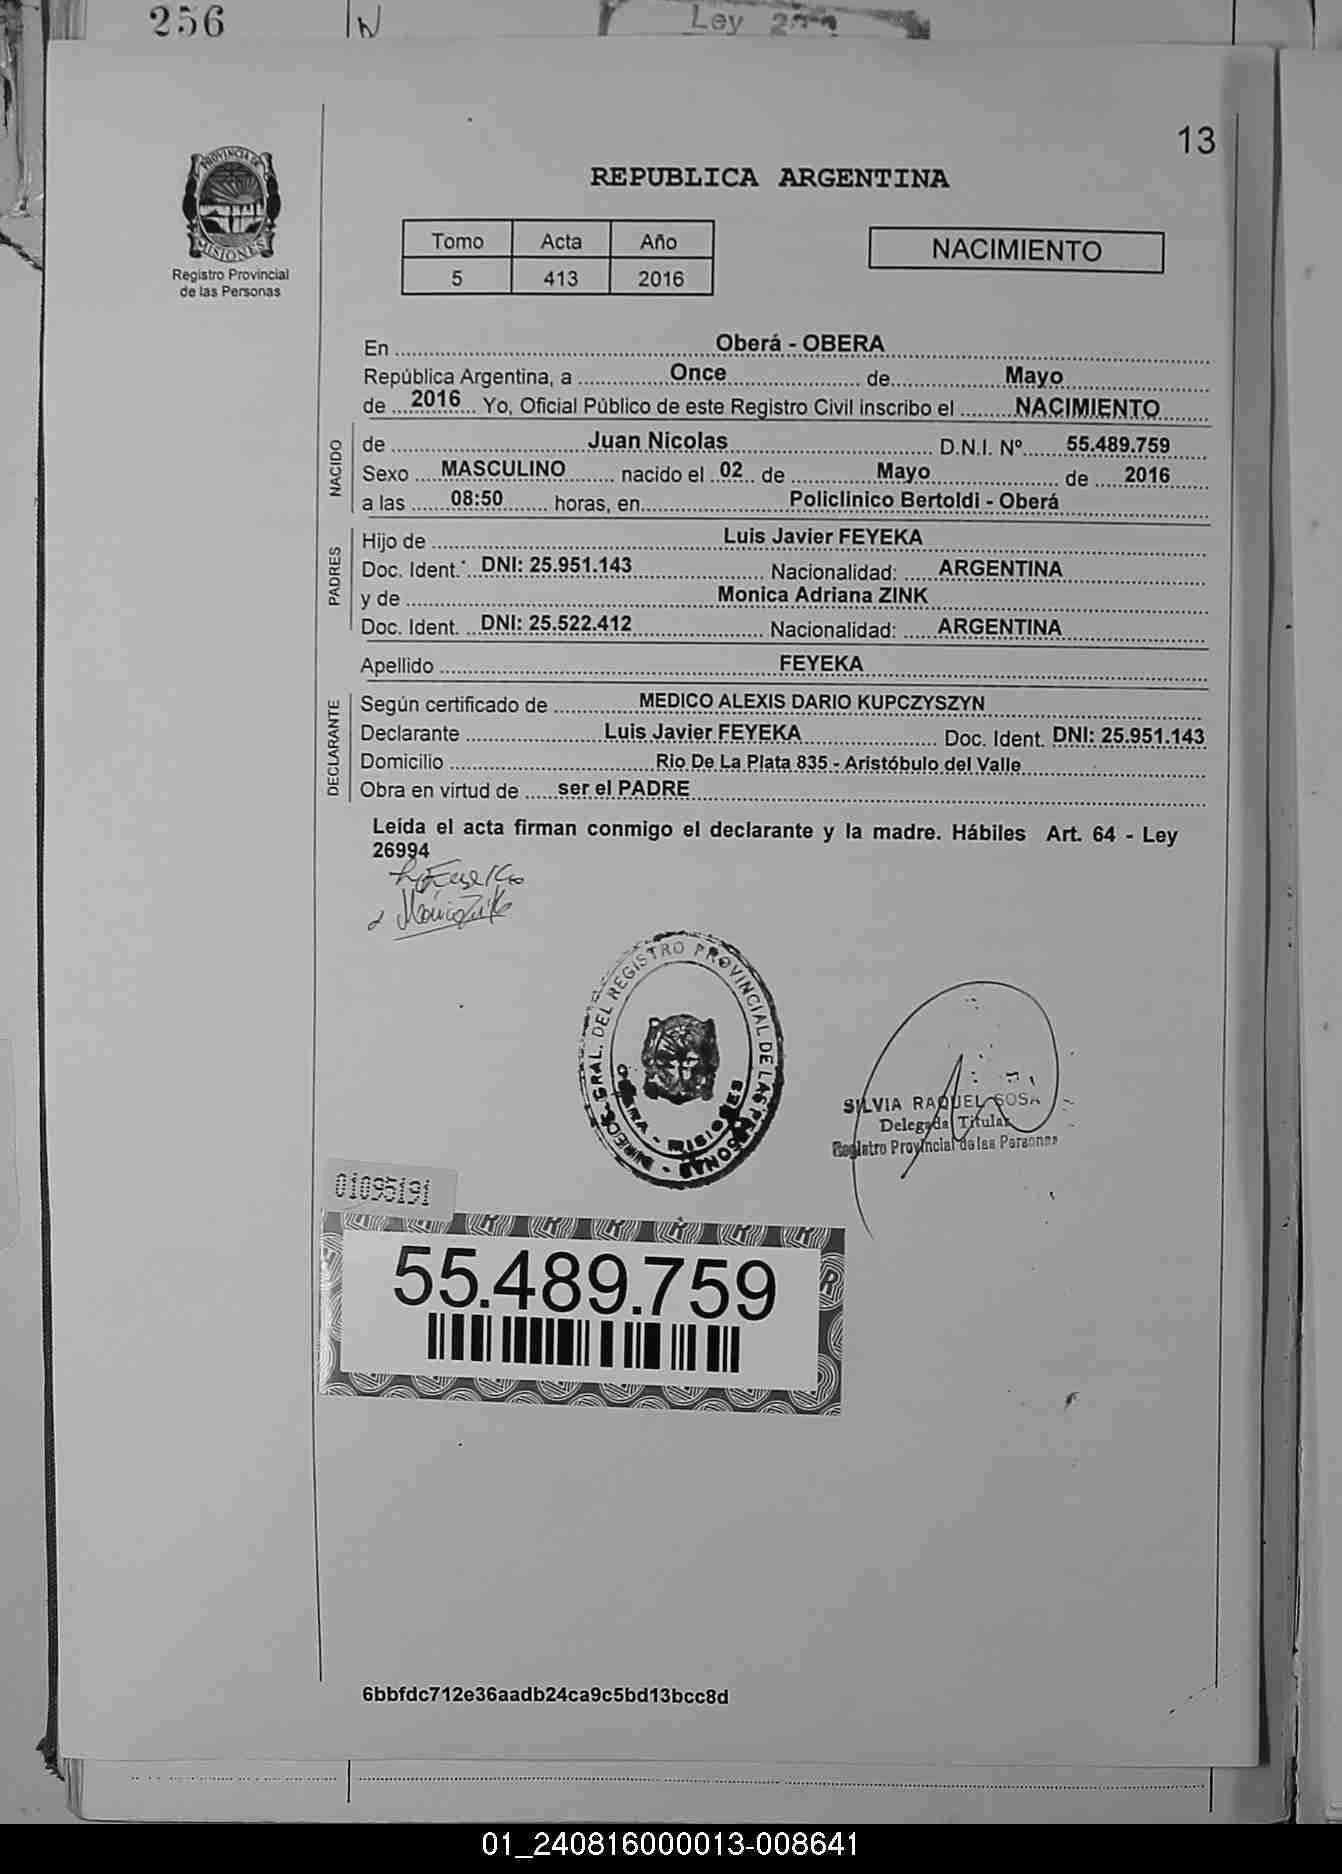 256
N
Ley
13
PROVINCIA DE
MISIONES
Registro Provincial
de las Personas
REPUBLICA ARGENTINA
Tomo Acta Año
5 413 2016
NACIMIENTO
En Oberá - OBERA
República Argentina, a Once de Mayo
de 2016 Yo, Oficial Público de este Registro Civil inscribo el NACIMIENTO
NACIDO
de Juan Nicolas D.N.I. Nº 55.489.759
Sexo MASCULINO nacido el 02 de Mayo de 2016
a las 08:50 horas, en Policlinico Bertoldi - Oberá
PADRES
Hijo de Luis Javier FEYEKA
Doc. Ident. DNI: 25.951.143 Nacionalidad: ARGENTINA
y de Monica Adriana ZINK
Doc. Ident. DNI: 25.522.412 Nacionalidad: ARGENTINA
Apellido FEYEKA
DECLARANTE
Según certificado de MEDICO ALEXIS DARIO KUPCZYSZYN
Declarante Luis Javier FEYEKA Doc. Ident. DNI: 25.951.143
Domicilio Rio De La Plata 835 - Aristóbulo del Valle
Obra en virtud de ser el PADRE
Leída el acta firman conmigo el declarante y la madre. Hábiles Art. 64 - Ley
26994
DIRECC. GRAL. DEL REGISTRO PROVINCIAL DE LAS PERSONAS
OBERA - MISIONES
SILVIA RAQUEL SOSA
Delegada Titular
Registro Provincial de las Personas
01095191
55.489.759
6bbfdc712e36aadb24ca9c5bd13bcc8d
01_240816000013-008641